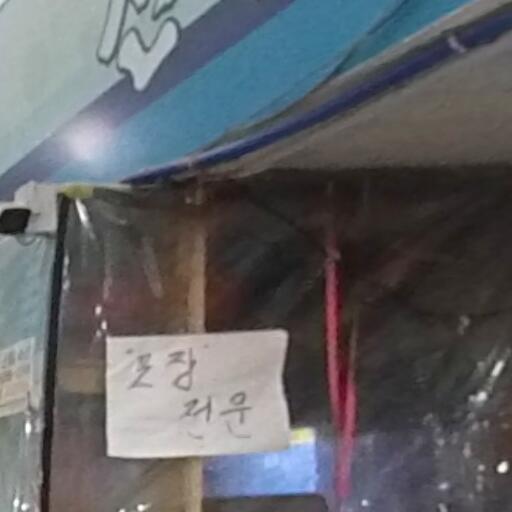 포장
전문